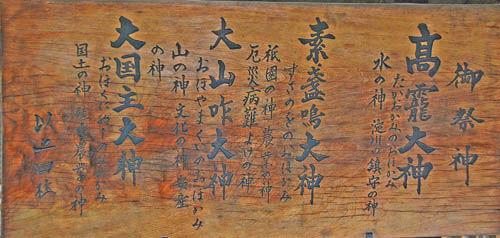 御祭神
高龗大神
たかおかみのおほかみ
水の神 淀川の鎮守の神
素盞嗚大神
すさのをのおほかみ
祇園の神 農耕の神
厄災 病難 除の神
大山咋大神
おほやまくひのおほかみ
山の神 文化の神 安産
の神
大国主大神
おほくにぬしのおほかみ
国土の神 農業の神
以上四柱